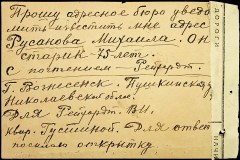 Прошу адресное бюро уведо
мить известить мне адрес
Русанова Михаила! Он
старик 75-лет.
с почтением Рейхердт.
Г. Вознесенск. Пушкинская
Николаевской обл.
Д. Рейхердт. В.И.
квар. Гусиной. Для ответ
посылаю открытку.
ДОРОГИ